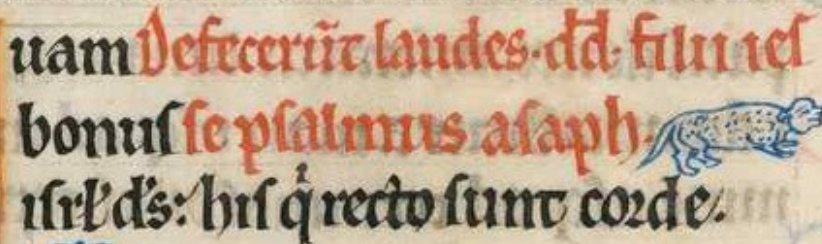 uam Defecerūt laudes · dd̄ · filii ieſ
bonuſ ſe pſalmus aſaph ·
iſrl̄ ds̄: hiſ q̇ recto ſunt corde.